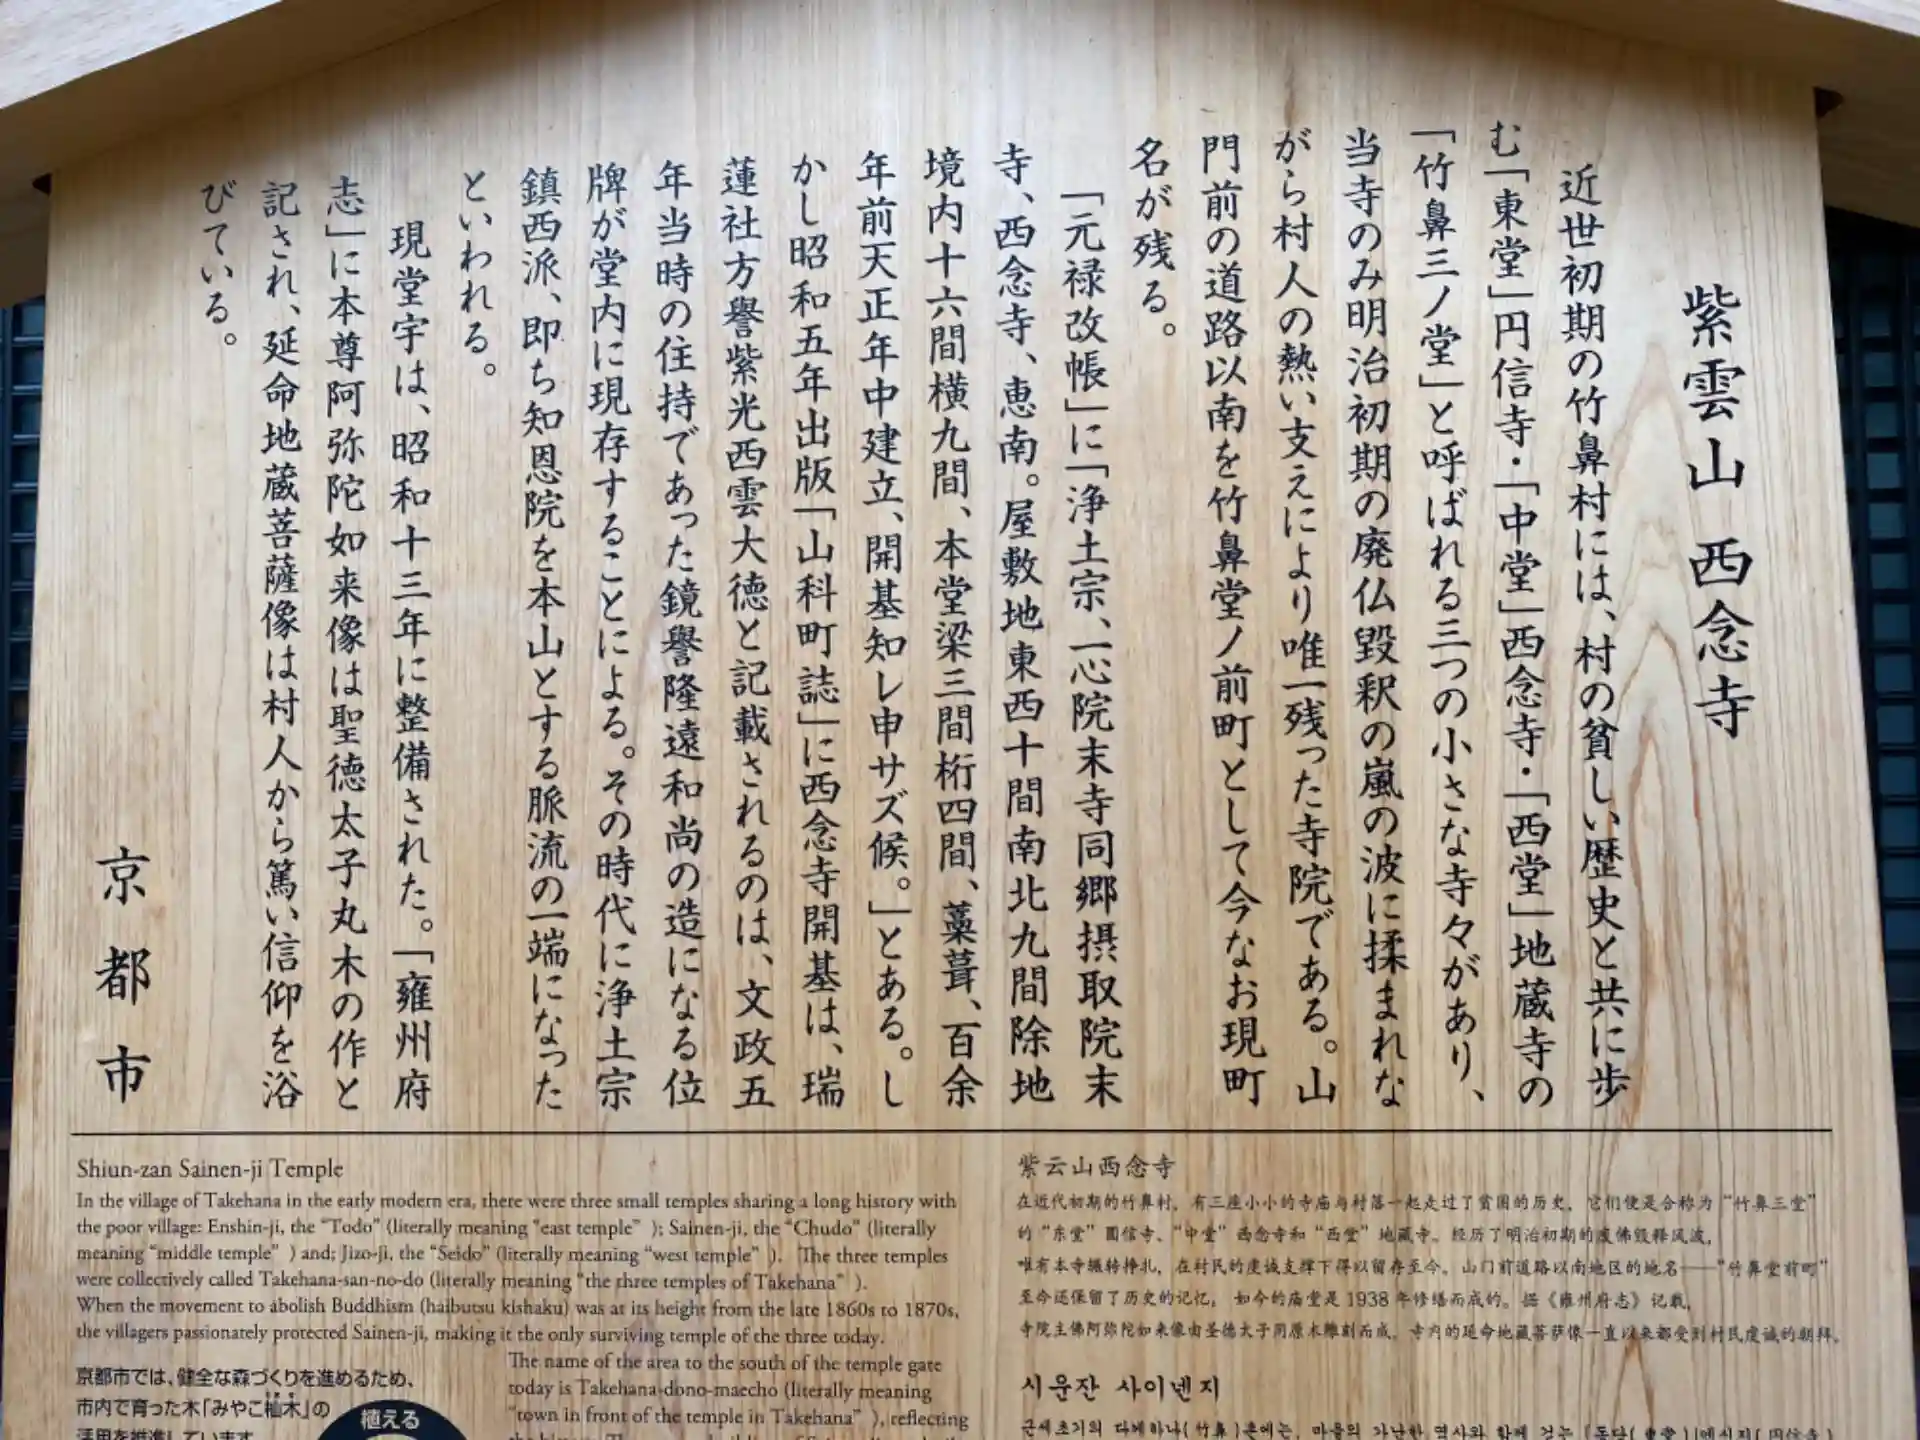 紫雲山 西念寺
近世初期の竹鼻村には、村の貧しい歴史と共に歩
む「東堂」円信寺・「中堂」西念寺・「西堂」地蔵寺の
「竹鼻三ノ堂」と呼ばれる三つの小さな寺々があり、
当寺のみ明治初期の廃仏毀釈の嵐の波に揉まれな
がら村人の熱い支えにより唯一残った寺院である。山
門前の道路以南を竹鼻堂ノ前町として今なお現町
名が残る。
「元禄改帳」に「浄土宗、一心院末寺同郷摂取院末
寺、西念寺、恵南。屋敷地東西十間南北九間除地
境内十六間横九間、本堂梁三間桁四間、藁葺、百余
年前天正年中建立、開基知レ申サズ候。」とある。し
かし昭和五年出版「山科町誌」に西念寺開基は、瑞
蓮社方譽紫光西雲大徳と記載されるのは、文政五
年当時の住持であった鏡譽隆遠和尚の造になる位
牌が堂内に現存することによる。その時代に浄土宗
鎮西派、即ち知恩院を本山とする脈流の一端になった
といわれる。
現堂宇は、昭和十三年に整備された。「雍州府
志」に本尊阿弥陀如来像は聖徳太子丸木の作と
記され、延命地蔵菩薩像は村人から篤い信仰を浴
びている。
京都市
Shiun-zan Sainen-ji Temple
In the village of Takehana in the early modern era, there were three small temples sharing a long history with
the poor village: Enshin-ji, the “Todo” (literally meaning “east temple” ); Sainen-ji, the “Chudo” (literally
meaning “middle temple” ) and; Jizo-ji, the “Seido” (literally meaning “west temple” ). The three temples
were collectively called Takehana-san-no-do (literally meaning “the three temples of Takehana” ).
When the movement to abolish Buddhism (haibutsu kishaku) was at its height from the late 1860s to 1870s,
the villagers passionately protected Sainen-ji, making it the only surviving temple of the three today.
The name of the area to the south of the temple gate
today is Takehana-dono-maecho (literally meaning
“town in front of the temple in Takehana” ), reflecting
京都市では、健全な森づくりを進めるため、
市内で育った木「みやこ杣木」の
活用を推進しています
植える
紫云山西念寺
在近代初期的竹鼻村，有三座小小的寺庙与村落一起走过了贫困的历史，它们便是合称为“竹鼻三堂”
的“东堂”圆信寺、“中堂”西念寺和“西堂”地藏寺。经历了明治初期的废佛毁释风波，
唯有本寺辗转挣扎，在村民的虔诚支撑下得以留存至今。山门前道路以南地区的地名——“竹鼻堂前町”
至今还保留了历史的记忆， 如今的庙堂是1938年修缮而成的。据《雍州府志》记载，
寺院主佛阿弥陀如来像由圣德太子用原木雕刻而成，寺内的延命地藏菩萨像一直以来都受到村民虔诚的朝拜。
시운잔 사이넨지